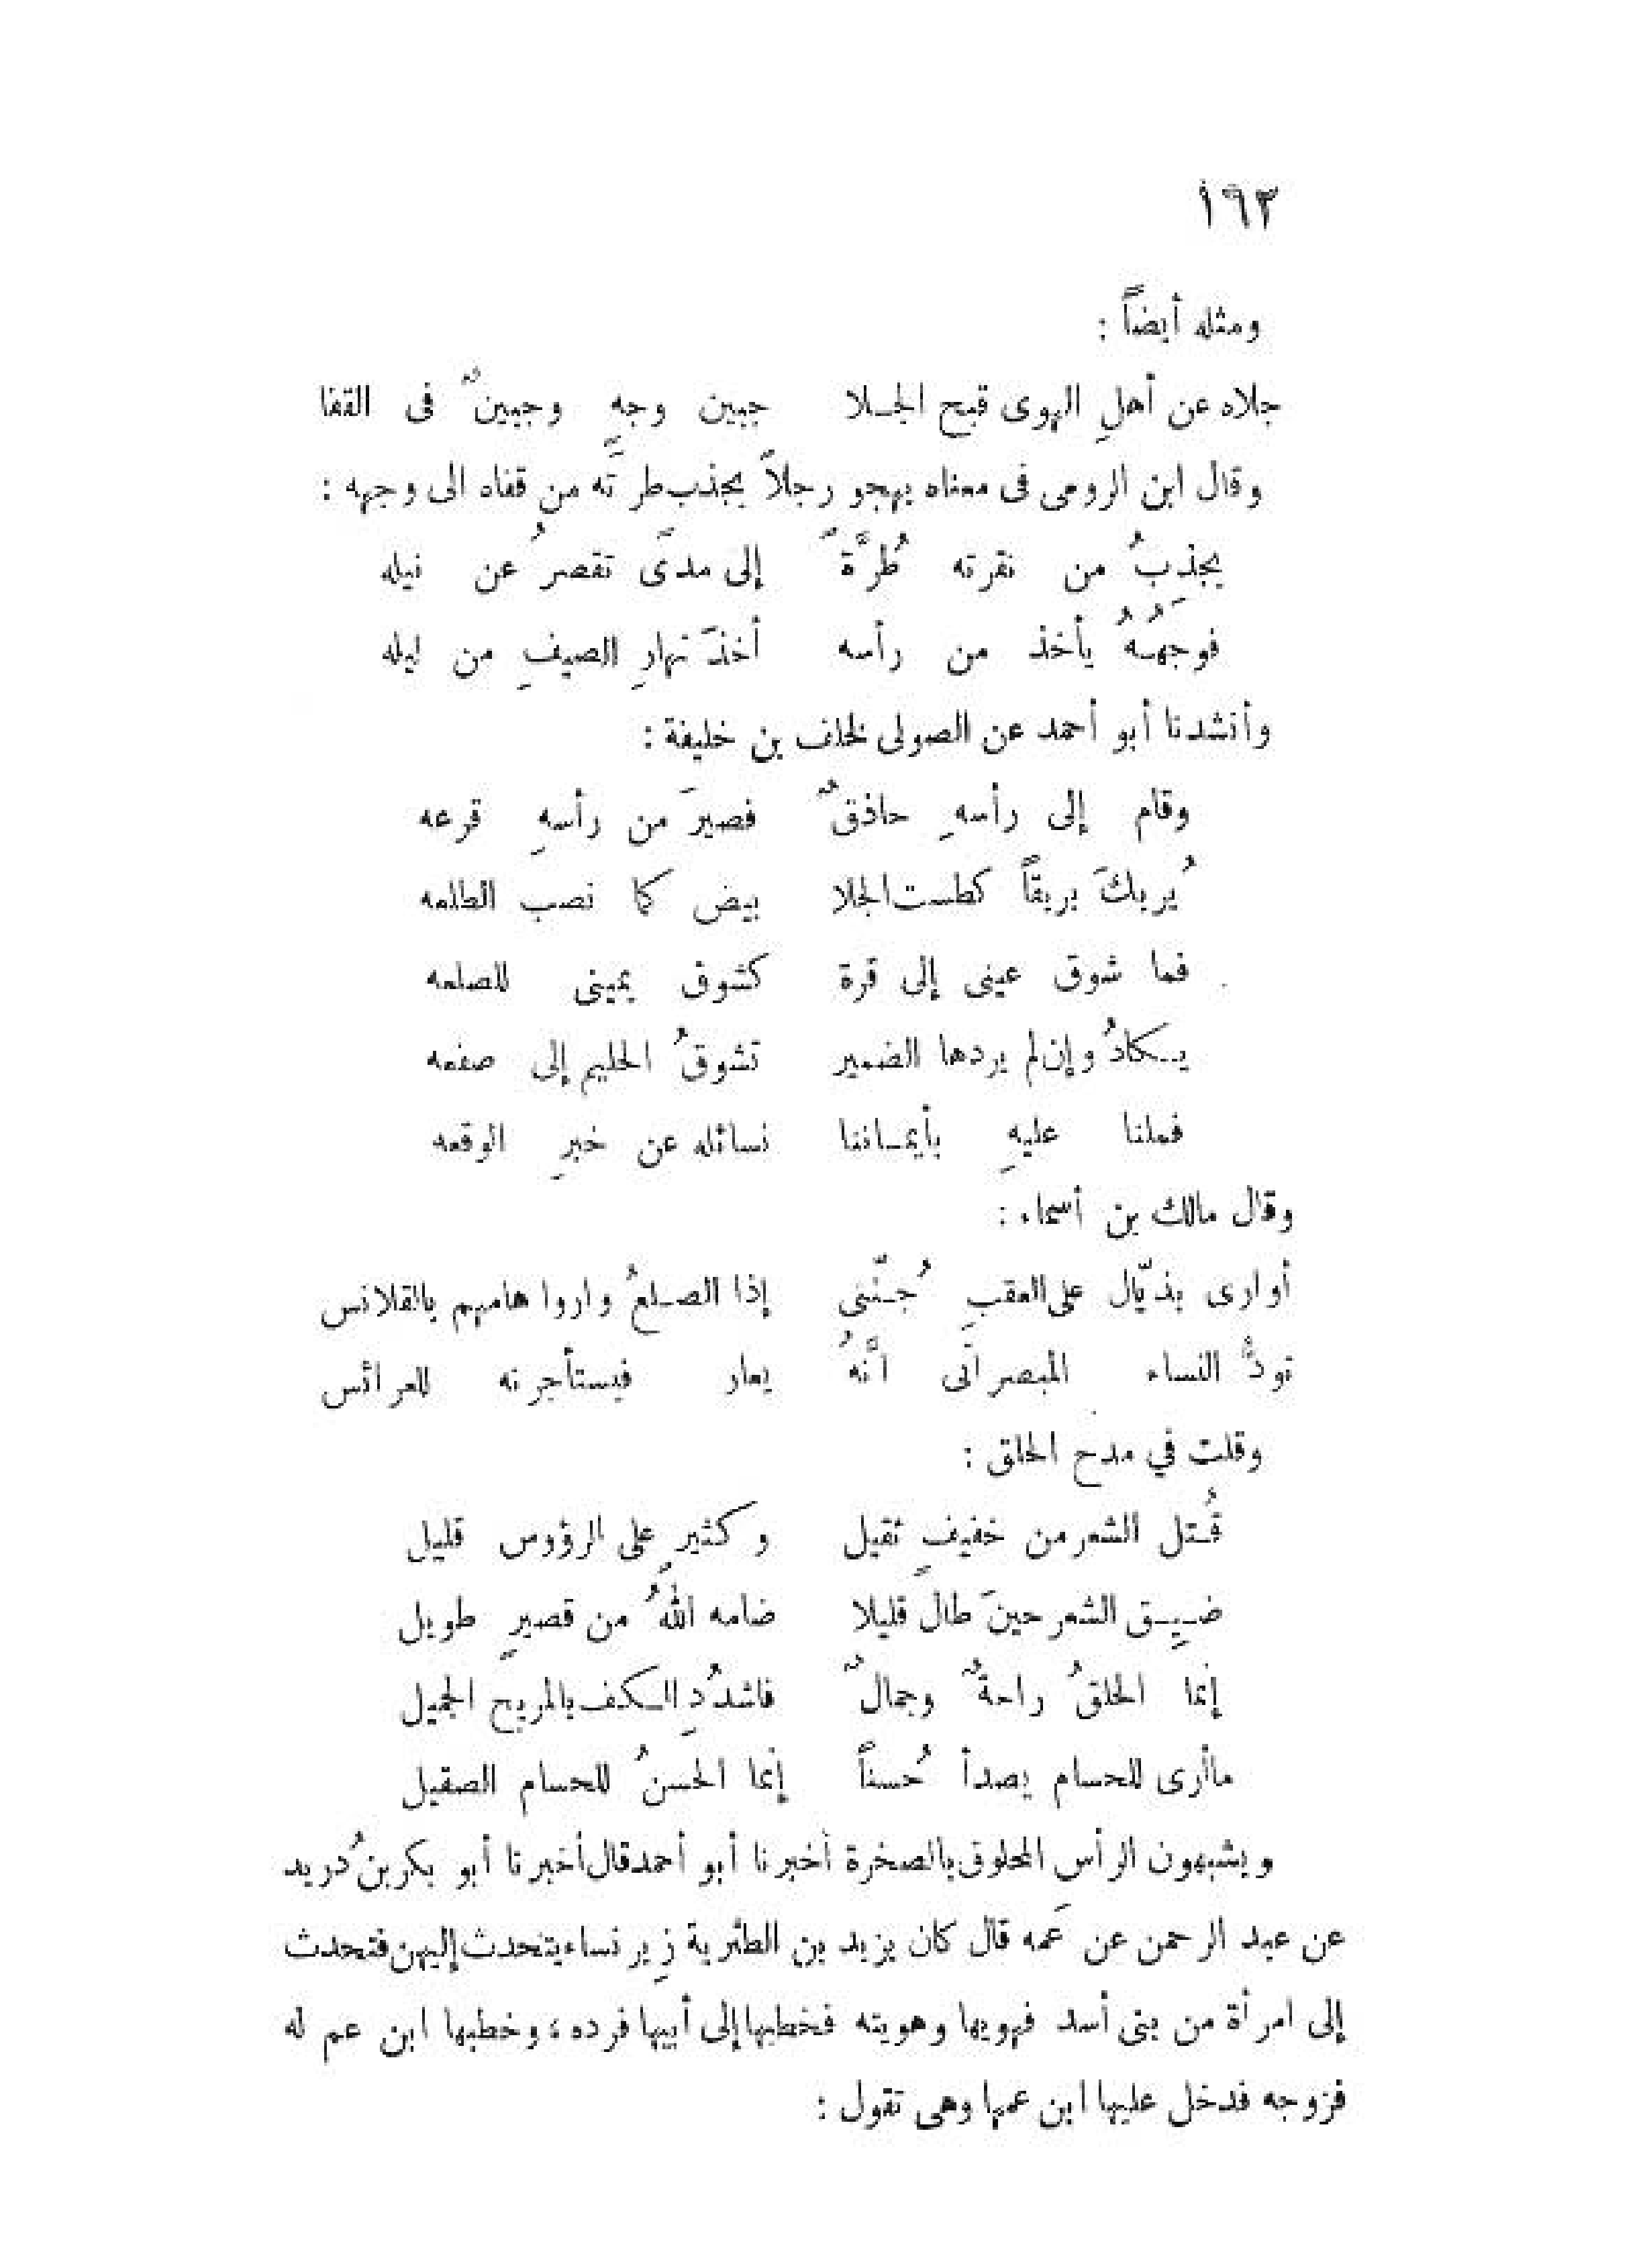 ١٩٣
ومثله أيضاً :
جلاه عن أهلِ الهوى قبح الجـلا جبين وجهٍ وجبينٌ فى القفا
وقال ابن الرومى فى معناه يهجو رجلاً يجذب طرَّته من قفاه الى وجهه :
يجذِبُ من نقرته طُرَّةً إلى مدىً تقصرُ عن نيله
فوجهُهُ يأخذ من رأسه أخذَ نهارِ الصيفِ من ليله
وأنشدنا أبو أحمد عن الصولى لخلف بن خليفة :
وقام إلى رأسهِ حاذقٌ فصيرَ من رأسهِ قرعه
يُريكَ بريقاً كطست الجلا بيض كما نصب الطلعه
فما شوق عينى إلى قرة كشوق يمينى للصلعه
يـكادُ وإن لم يردها الضمير تشوقُ الحليم إلى صفعه
فملنا عليهِ بأيمـاننا نسائله عن خبرِ الوقعه
وقال مالك بن أسماء :
أوارى بذيّال على العقبِ جُـنّتى إذا الصـلعُ واروا هامهم بالقلانس
تودُّ النساء المبصراتى أنَّهُ يعار فيستأجرنه للعرائس
وقلت في مدح الحلق :
قُـتل الشعر من خفيفٍ ثقيل وكثيرٍ على الرؤوس قليل
ضـيِـق الشعر حينَ طال قليلا ضامه اللهُ من قصيرٍ طويل
إنما الحلقُ راحةٌ وجمالٌ فاشدُدِ الـكف بالمريح الجميل
ماأرى للحسام يصدأ حُسناً إنما الحسنُ للحسام الصقيل
ويشبهون الرأس المحلوق بالصخرة أخبرنا أبو أحمد قال أخبرنا أبو بكر بن دُريد
عن عبد الرحمن عن عَمه قال كان يزيد بن الطثرية زِير نساء يتحدث إليهن فتحدث
إلى امرأة من بنى أسد فهويها وهويته فخطبها إلى أبيها فرده ، وخطبها ابن عم له
فزوجه فدخل عليها ابن عمها وهى تقول :